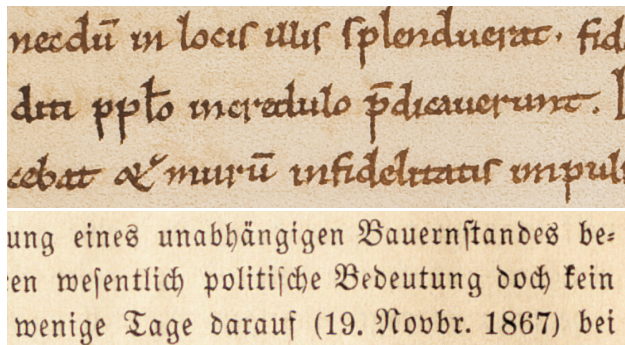 necdū in locis illis splenduerat. fid
diti pplo incredulo p̄dicauerunt.
cebat & murū infidelitatis impul
ung eines unabhängigen Bauernſtandes be⸗
en weſentlich politiſche Bedeutung doch kein
wenige Tage darauf (19. Novbr. 1867) bei